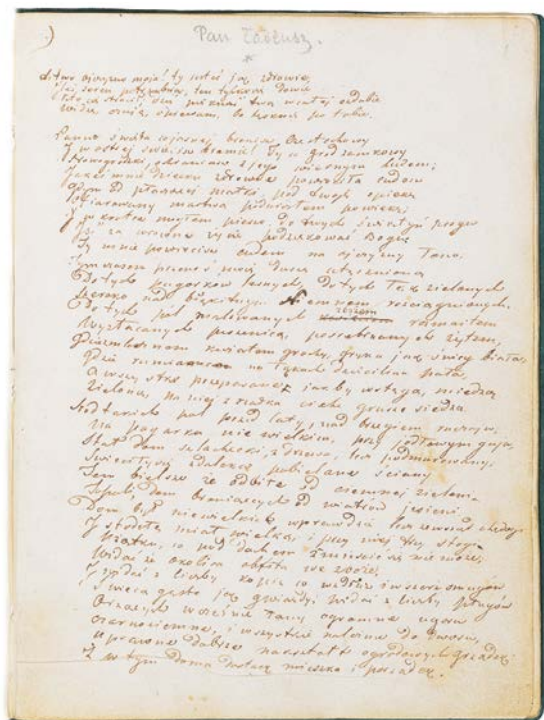 Pan Tadeusz.
Litwo ojczyzno moja! ty jesteś jak zdrowie;
potrzebna, ten tylko się dowie
Kto cię stracił, dziś piękność twą w całej ozdobie
Widzę, opisuję, bo tęsknię po tobie.
Panno święta co jasnej bronisz Częstochowy
I w ostrej świecisz bramie! Ty co gród zamkowy
Nowogródzki, ochraniasz z jego wiernym ludem;
Jak mnie dziecko zdrowiu powróciłaś cudem
Gdym od płaczącej matki, pod twoję opiekę
Ofiarowany martwą podniosłem powiekę;
mogłem pieszo do twych świątyń progu
Iść za wrócone życie podziękować Bogu
Tak mnie powrócisz cudem na ojczyzny łono.
Tymczasem przenoś moją duszę utęsknioną
Do tych pagórków leśnych, do tych łąk zielonych
Szeroko nad błękitnym Niemnem rozciągnionych.
Do tych pól malowanych zbożem rozmaitem
Wyzłacanych pszenicą, posrebrzanych żytem,
kwiatem gryka jak śnieg biała,
Gdzie na pała,
A wszystko przepasane jakby wstęgą, miedzą
Zieloną, na niej z rzadka ciche grusze siedzą.
Śród takich pól przed laty, nad brzegiem ruczaju,
Na pagórku niewielkim, przy jodłowym gaju,
Stał dom szlachecki, z drzewa, lecz podmurowany;
Świeciły się zdaleka pobielane ściany
Tem bielsze że odbite od ciemnej zieleni
Topoli, broniących od wiatrów jesieni.
Dom był niewielki wprawdzie lecz zewsząd chędogi
I stodołę miał wielką, i przy niej trzy stogi
co pod dachem zmieścić się nie może,
Widać że okolica obfita we zboże,
I widać z liczby kopic co wzdłuż i wszerz smugów
Świecą gęsto jak gwiazdy; widać z liczby pługów
Orzących wcześnie łany ogromne ugoru
Czarnoziemne, i wszystkie należne do dworu,
Uprawne dobrze nakształt ogrodowych grządek.
w tym domu dostatek mieszka i porządek.